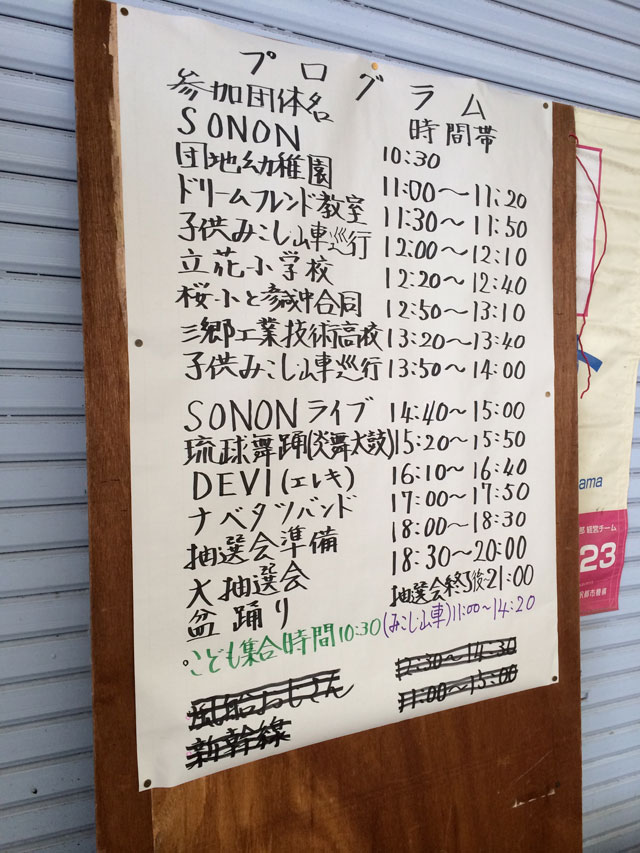 プログラム
参加団体名 時間帯
SONON 10:30
団地幼稚園 11:00〜11:20
ドリームフレンド教室 11:30〜11:50
子供みこし山車巡行 12:00〜12:10
立花小学校 12:20〜12:40
桜小と参減中合同 12:50〜13:10
三郷工業技術高校 13:20〜13:40
子供みこし山車巡行 13:50〜14:00
SONONライブ 14:40〜15:00
琉球舞踊(炎舞太鼓) 15:20〜15:50
DEVI(エレキ) 16:10〜16:40
ナベタツバンド 17:00〜17:50
抽選会準備 18:00〜18:30
大抽選会 18:30〜20:00
盆踊り 抽選会終了後〜21:00
○こども集合時間10:30(みこし山車)11:00〜14:20
風船おじさん 12:30〜14:30
新幹線 11:00〜15:00
ama
部 経営チーム
23